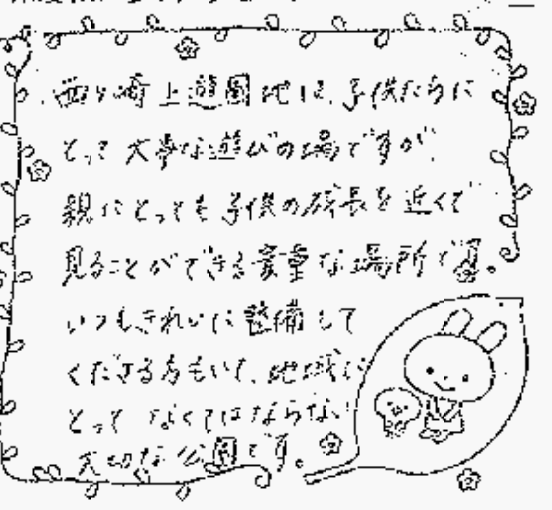 西ヶ崎上遊園地は、子供たちに
とって大事な遊びの場ですが、
親にとっても子供の成長を近くで
見ることができる貴重な場所です。
いつもきれいに整備して
くださる方もいて、地域に
とってなくてはならない
大切な公園です。